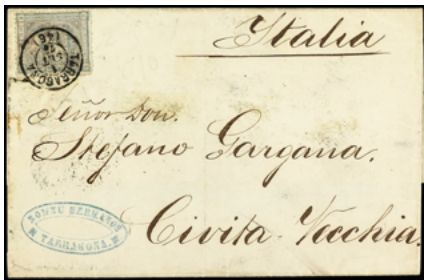 Italia
TARRAGONA
Señor Don.
Stefano Gargana.
Civita-Vecchia.
HERMANOS
TARRAGONA.